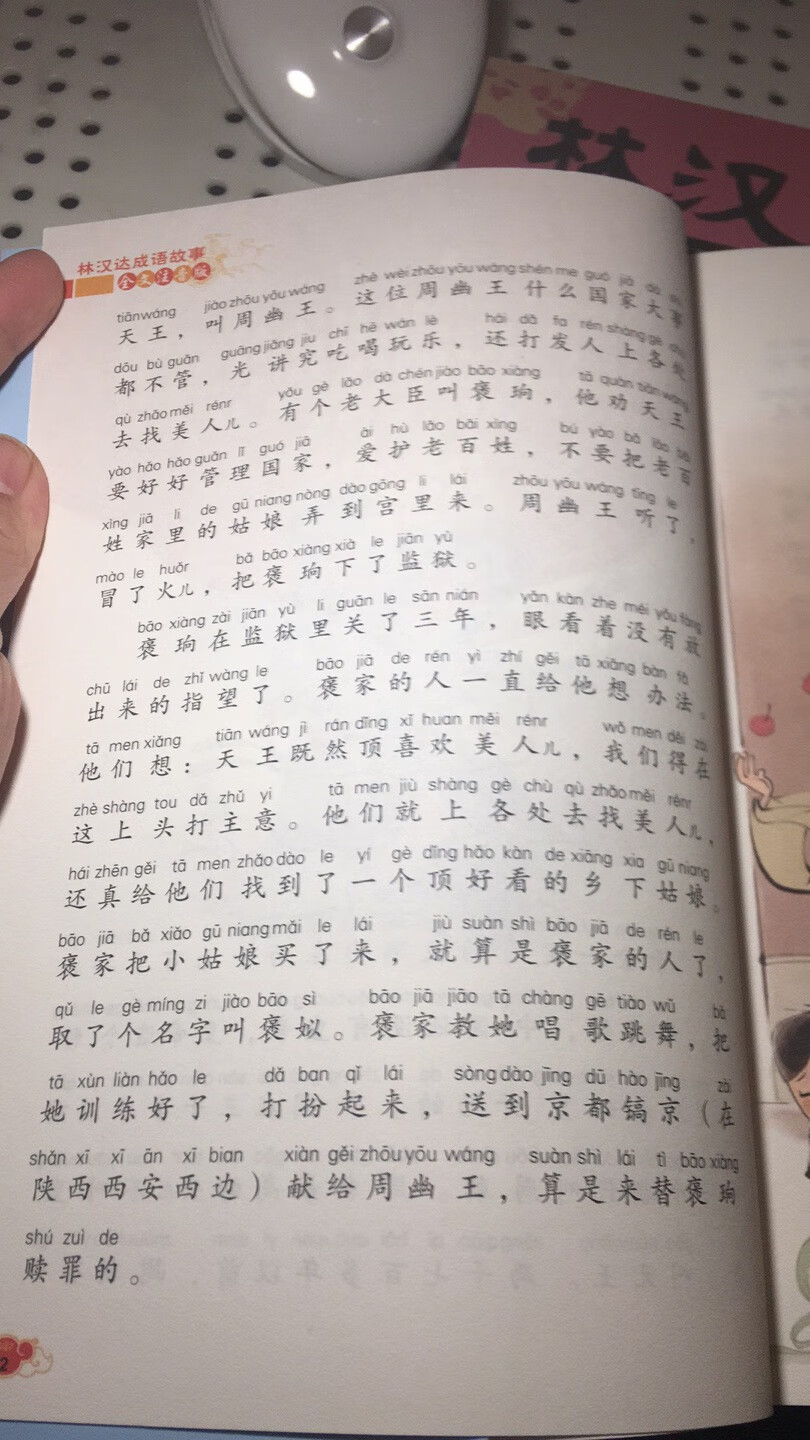 林汉
林汉达成语故事
全文注音版
tiānwáng jiào zhōu yōu wáng zhè wèi zhōu yōu wáng shén me guó jiā dà
天王，叫周幽王。这位周幽王什么国家大事
dōu bù guǎn guāng jiǎng jiu chī hē wán lè hái dǎ fa rén shàng gè chù
都不管，光讲究吃喝玩乐，还打发人上各处
qù zhǎo měi rénr yǒu gè lǎo dà chén jiào bāo xiàng tā quàn tiān wáng
去找美人儿。有个老大臣叫褒珦，他劝天王
yào hǎo hǎo guǎn lǐ guó jiā ài hù lǎo bǎi xìng bú yào bǎ lǎo bǎi
要好好管理国家，爱护老百姓，不要把老百
xìng jiā li de gū niang nòng dào gōng li lái zhōu yōu wáng tīng le
姓家里的姑娘弄到宫里来。周幽王听了，
mào le huǒr bǎ bāo xiàng xià le jiān yù
冒了火儿，把褒珦下了监狱。
bāo xiàng zài jiān yù li guān le sān nián yǎn kàn zhe méi yǒu fàng
褒珦在监狱里关了三年，眼看着没有放
chū lái de zhǐ wàng le bāo jiā de rén yì zhí gěi tā xiǎng bàn fǎ
出来的指望了。褒家的人一直给他想办法。
tā men xiǎng tiān wáng jì rán dǐng xǐ huan měi rénr wǒ men děi zài
他们想：天王既然顶喜欢美人儿，我们得在
zhè shàng tou dǎ zhǔ yi tā men jiù shàng gè chù qù zhǎo měi rénr
这上头打主意。他们就上各处去找美人儿，
hái zhēn gěi tā men zhǎo dào le yí gè dǐng hǎo kàn de xiāng xia gū niang
还真给他们找到了一个顶好看的乡下姑娘。
bāo jiā bǎ xiǎo gū niang mǎi le lái jiù suàn shì bāo jiā de rén le
褒家把小姑娘买了来，就算是褒家的人了，
qǔ le gè míng zi jiào bāo sì bāo jiā jiāo tā chàng gē tiào wǔ bǎ
取了个名字叫褒姒。褒家教她唱歌跳舞，把
tā xùn liàn hǎo le dǎ ban qǐ lái sòng dào jīng dū hào jīng zài
她训练好了，打扮起来，送到京都镐京（在
shǎn xī xī ān xī bian xiàn gěi zhōu yōu wáng suàn shì lái tì bāo xiàng
陕西西安西边）献给周幽王，算是来替褒珦
shú zuì de
赎罪的。
2